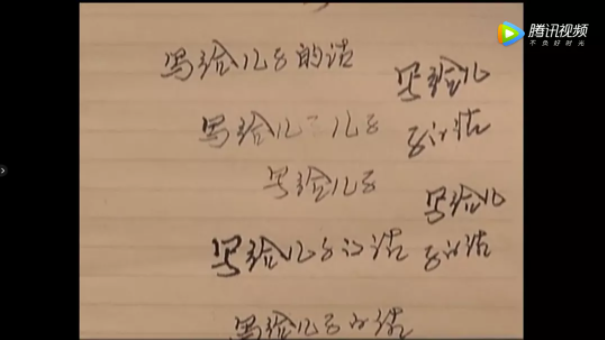 写给儿子的话
写给儿子儿子
写给儿子
写给儿子的话
写给儿子的话
写给儿
子的话
写给儿
子的话
腾讯视频
不负好时光